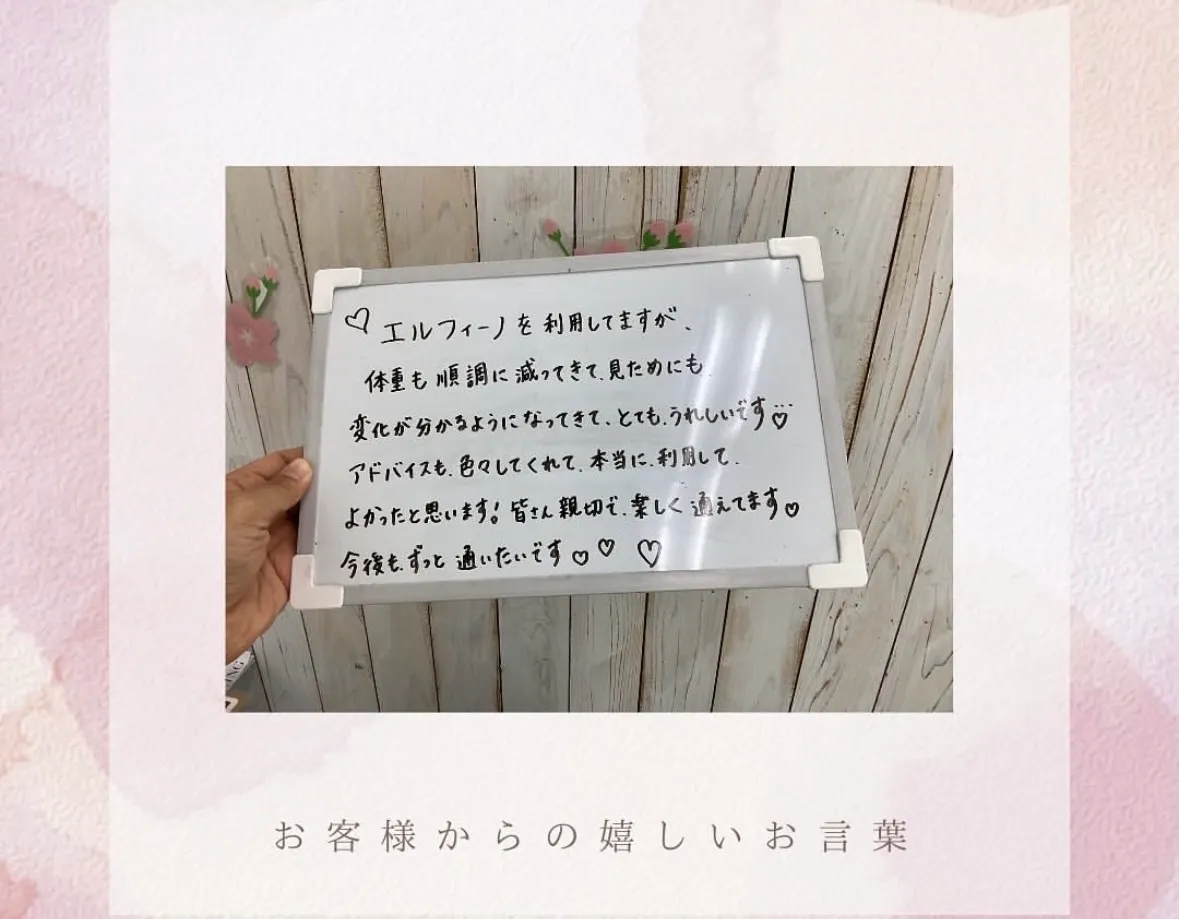 ♡ エルフィーノを利用してますが、
体重も順調に減ってきて、見ためにも
変化が分かるようになってきて、とても、うれしいです♡
アドバイスも、色々してくれて、本当に、利用して、
よかったと思います！皆さん親切で、楽しく通えてます♡
今後も、ずっと通いたいです♡♡♡
お客様からの嬉しいお言葉